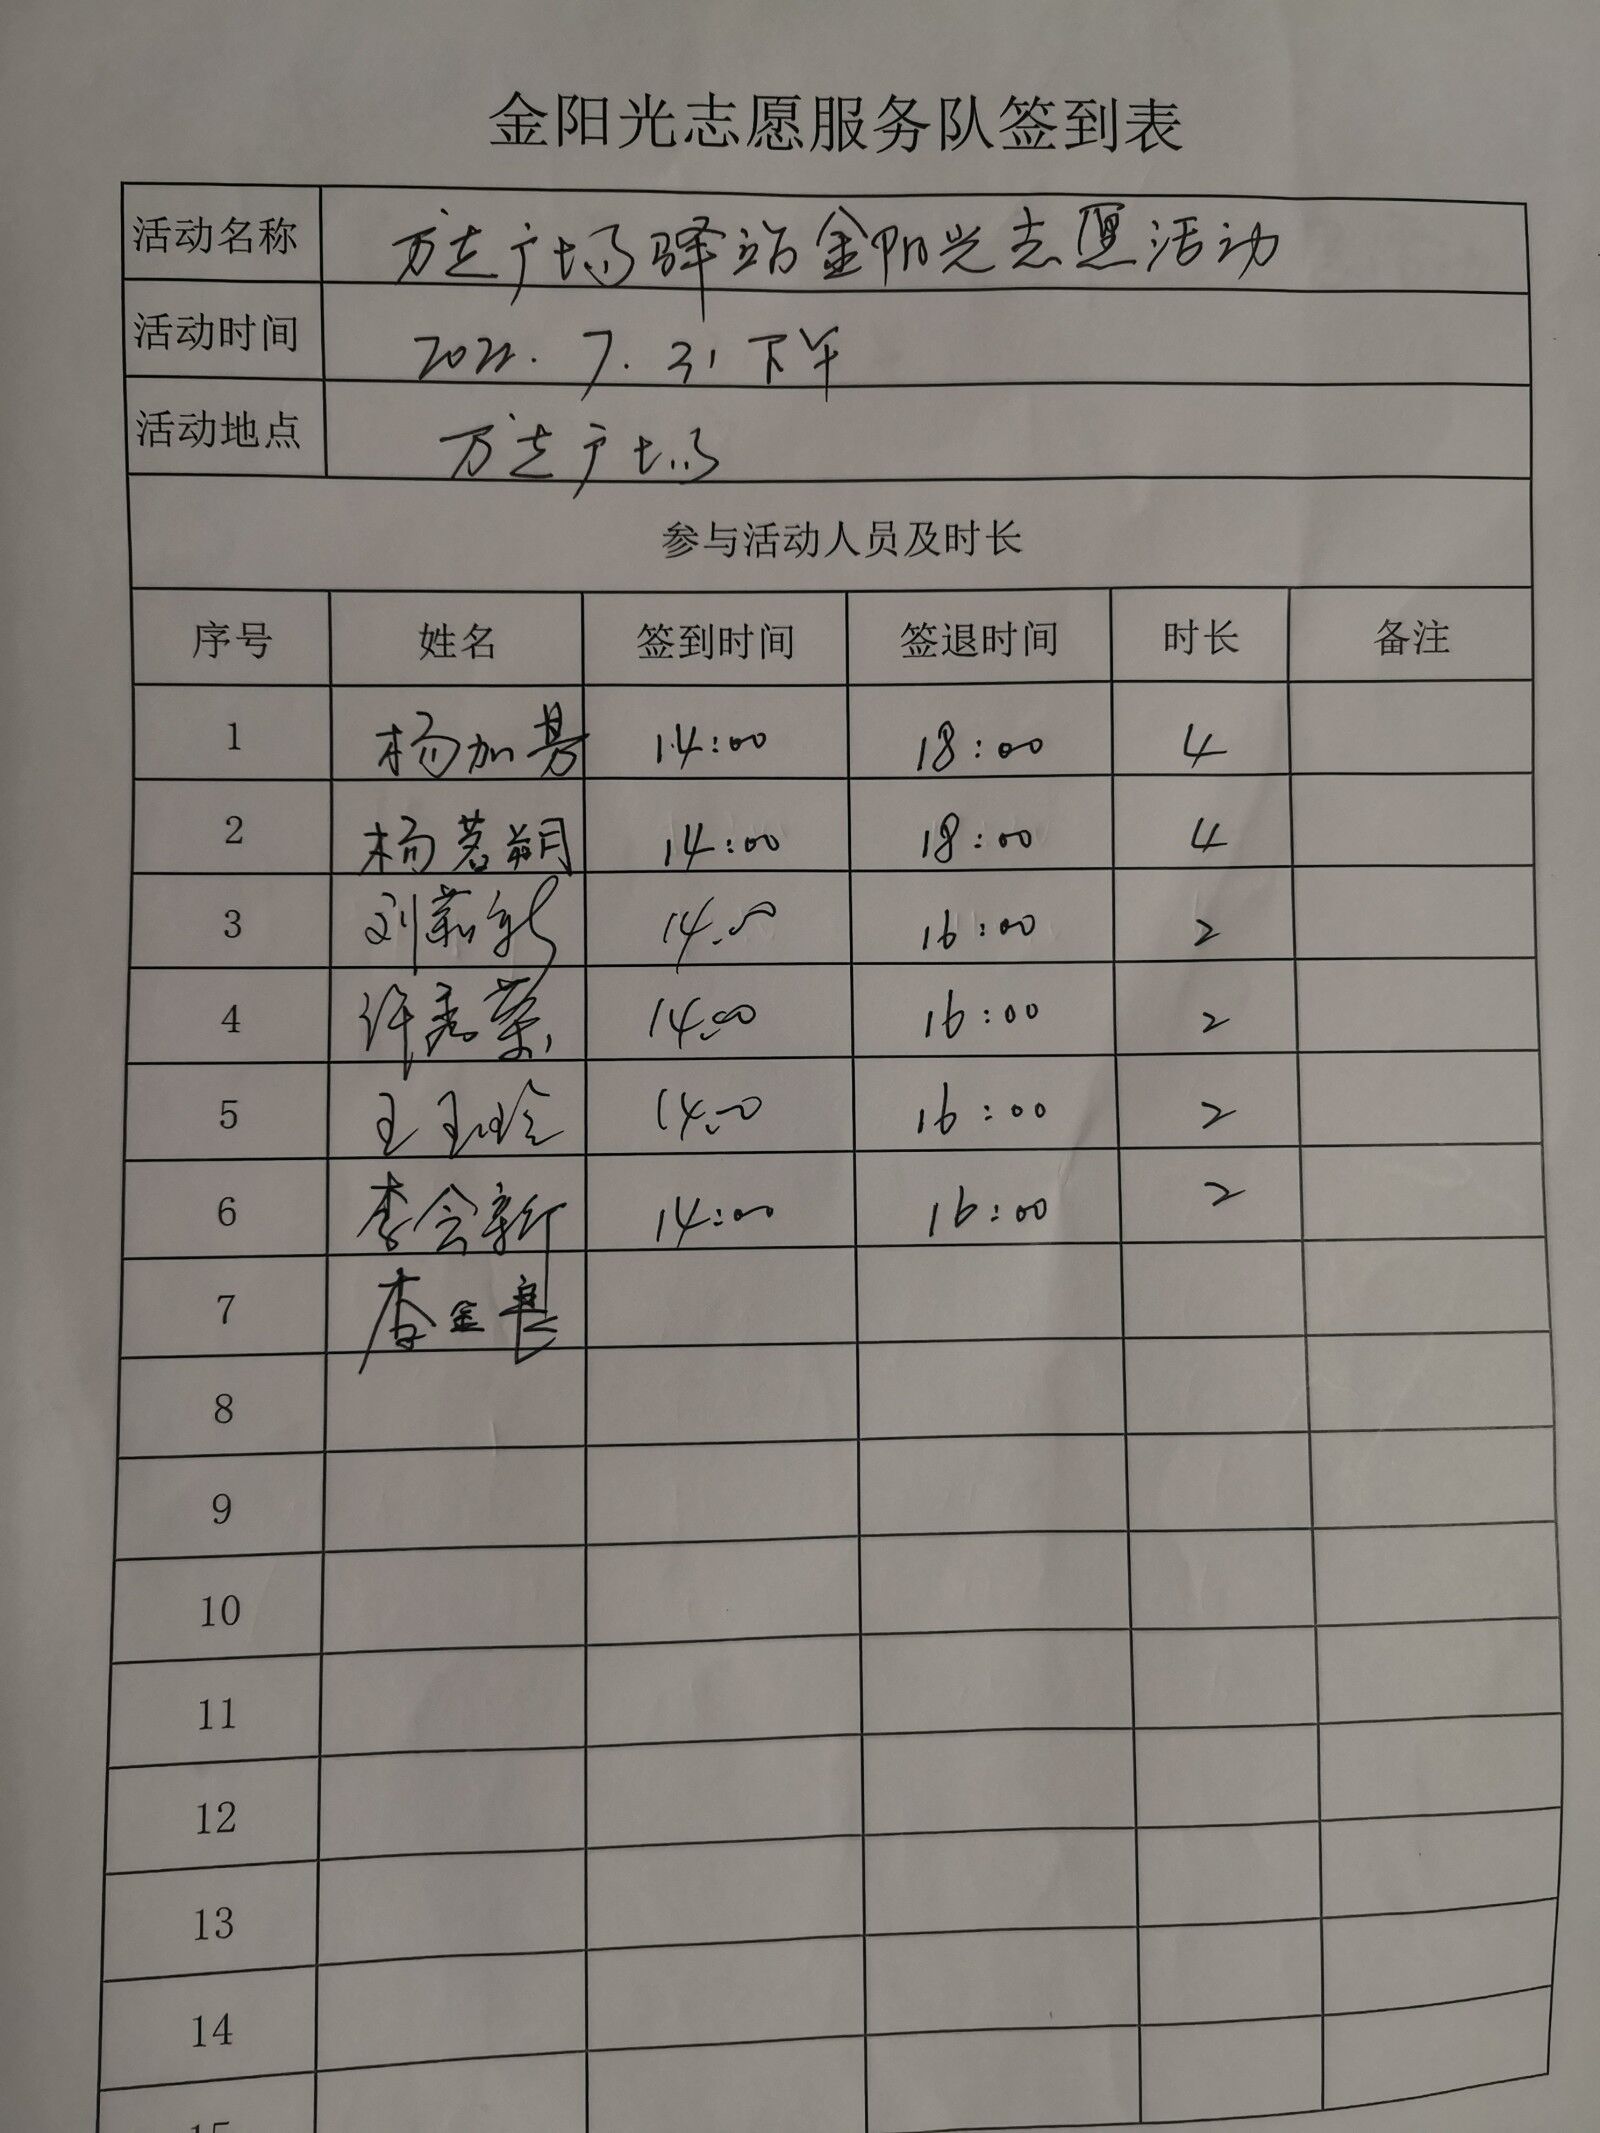 金阳光志愿服务队签到表
活动名称 万达广场驿站金阳光志愿活动
活动时间 2022.7.31下午
活动地点 万达广场
参与活动人员及时长
序号 姓名 签到时间 签退时间 时长 备注
1 杨加 14:00 18:00 4
2 杨茗朔 14:00 18:00 4
3 刘 新 14:00 16:00 2
4 许秀荣 14:00 16:00 2
5 王玉玲 14:00 16:00 2
6 李会新 14:00 16:00 2
7 李金良
8
9
10
11
12
13
14
15